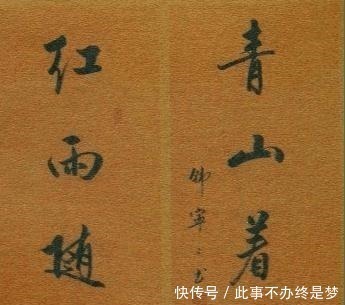 青山着
红雨随
快传号／此事不办终是梦